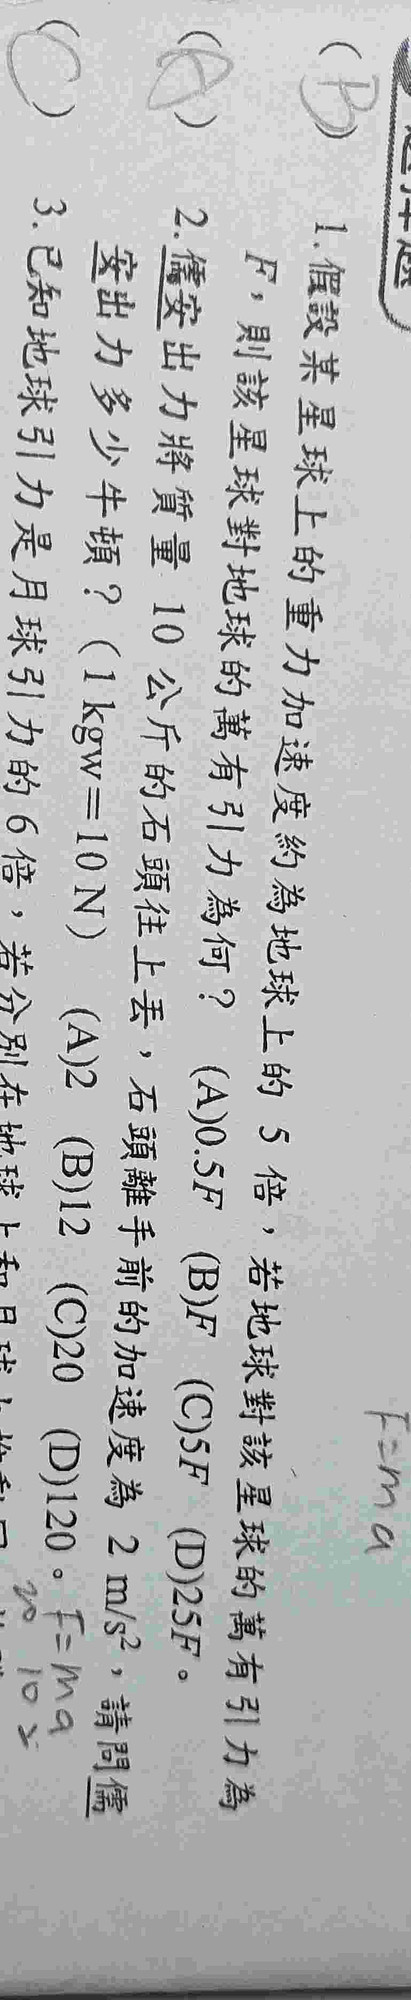 選擇題
F=ma
(B) 1.假設某星球上的重力加速度約為地球上的 5 倍，若地球對該星球的萬有引力為
F，則該星球對地球的萬有引力為何？ (A)0.5F (B)F (C)5F (D)25F。
(A) 2.儒安出力將質量 10 公斤的石頭往上丟，石頭離手前的加速度為 2 m/s²，請問儒
安出力多少牛頓？（1 kgw＝10 N） (A)2 (B)12 (C)20 (D)120。F=ma
20 10 2
(C) 3.已知地球引力是月球引力的 6 倍，若分別在地球上和月球上